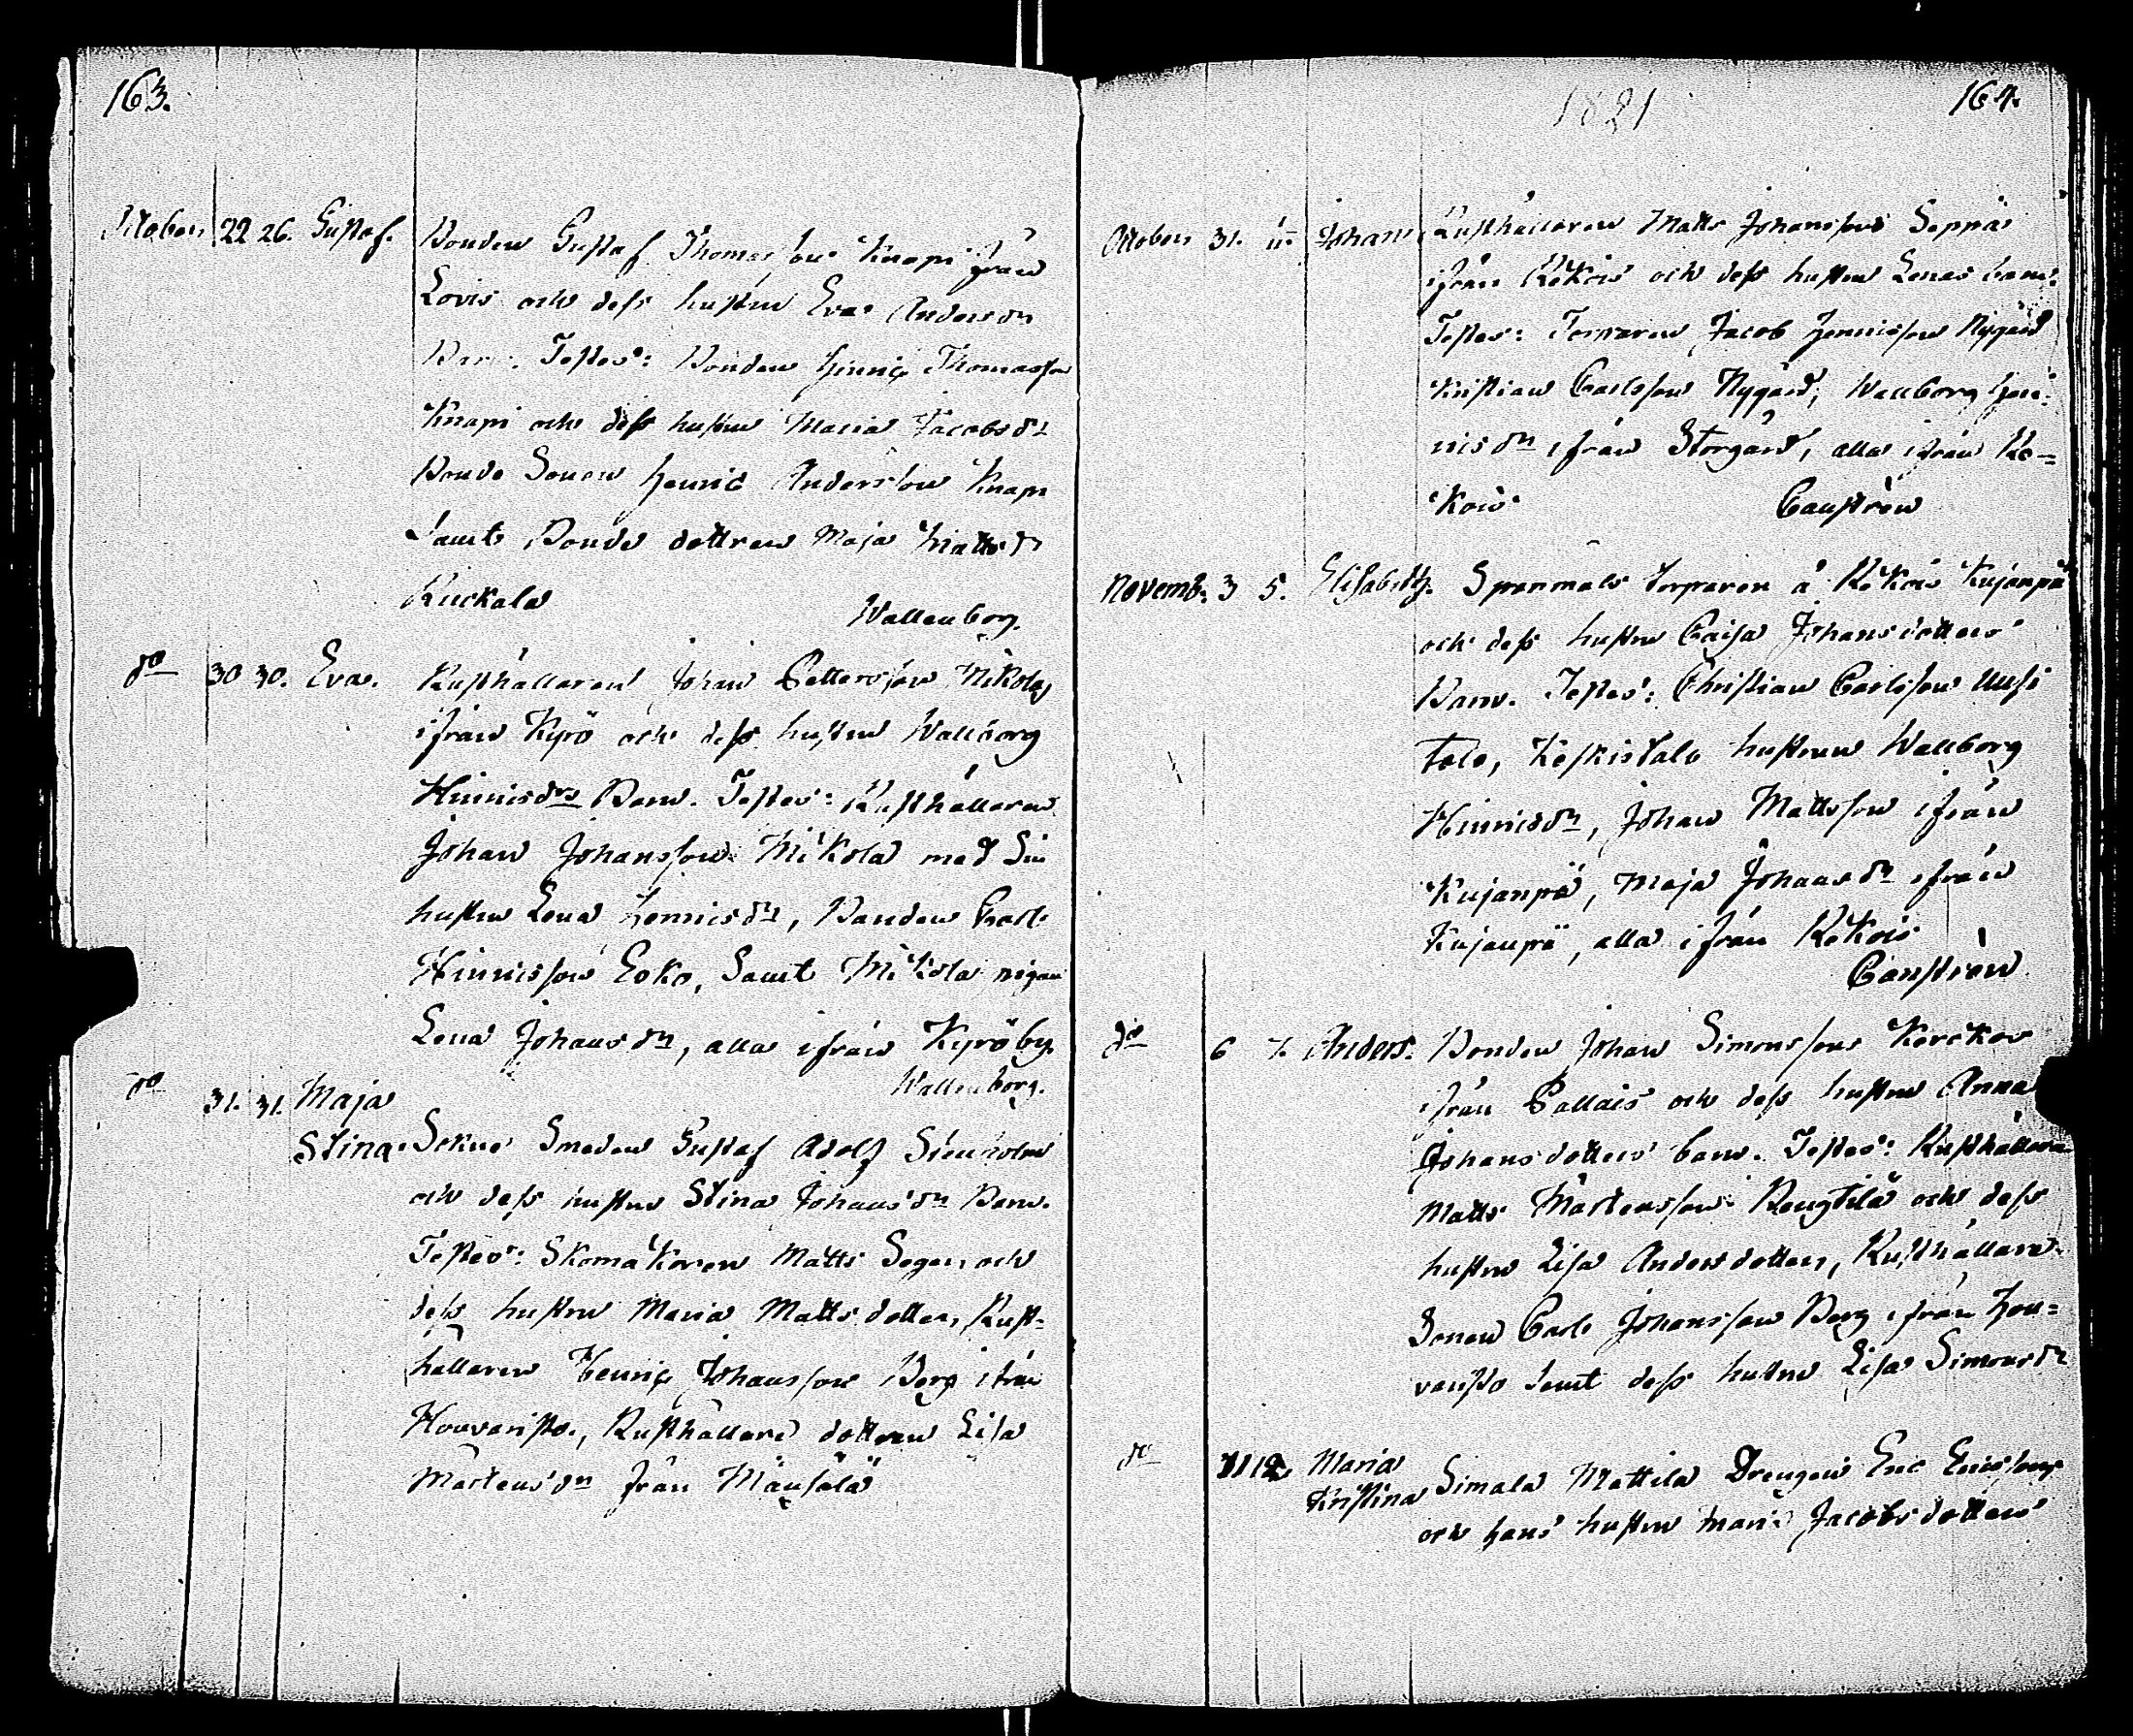 163.
October 22 26. Gustaf. Bonden Gustaf Thomasson Knapi ifrån
Lovis och dess hustru Eva Andersdr
Barn. Testes: Bonden Henric Thomasson
Knapi och dess hustru Maria Jacobsdr
Bonde Sonen Henric Andersson Knapi
Samt Bonde dottren Maja Mattsdr
Ruckala
Wallenborg.
do 30 30. Eva. Rusthållaren Johan Pettersson Mikola
ifrån Kyrö och dess hustru Wallborg
Hinricsdrs Barn. Testes: Rusthållaren
Johan Johansson Mikola med Sin
hustru Lena Henricsdr, Bonden Carl
Hinricsson Eoko, Samt Mikola pigan
Lena Johansdr, alla ifrån Kyröby.
Wallenborg.
do 31. 31. Maja
Stina. Sokne Smeden Gustaf Adolf
och dess hustru Stina Johansdr Barn.
Testes: Skomakaren Matts Seger och
dess hustru Maria Mattsdotter, Rust-
hållaren Henric Johansson Berg ifrån
Houvaristo, Rusthållare dottren Lisa
Mårtensdr från Mäusälä
1821
164.
October 31. Johan Rusthållaren Matts Johanssons Seppä
ifrån Kekois och dess hustru Lenas barn.
Testes: Torparen Jacob Henricsson Nygård
Kristian Carlsson Nygård, Wallborg Hen-
ricsdr ifrån Storgård, alla ifrån Ke-
kois Castrén
Novemb. 3 5. Elisabeth. Spanmåls torparen å Kekois Kujanpä
och dess hustru Caisa Johansdotters
Barn. Testes: Christian Carlsson Uusi
talo, Keskistalo hustrun Wallborg
Hinricsdr, Johan Mattsson ifrån
Kujanpä, Maja Johansdr ifrån
Kujanpä, alla ifrån Kekois
Castrén
do 6 7. Anders. Bonden Johan Simonssons Kerckov
ifrån Pallais och dess hustru Anna
Johansdotters barn. Testes: Rusthållaren
Matts Mårtensson Rengtilä och dess
hustru Lisa Andersdotter, Rusthållare
Sonen Carl Johansson Berg ifrån Hou-
varisto samt dess hustru Lisa Simonsdr
do 11 12 Maria
Kristina Simala Mattila Drengen Eric Ericssons
och hans hustru Maria Jacobsdotters